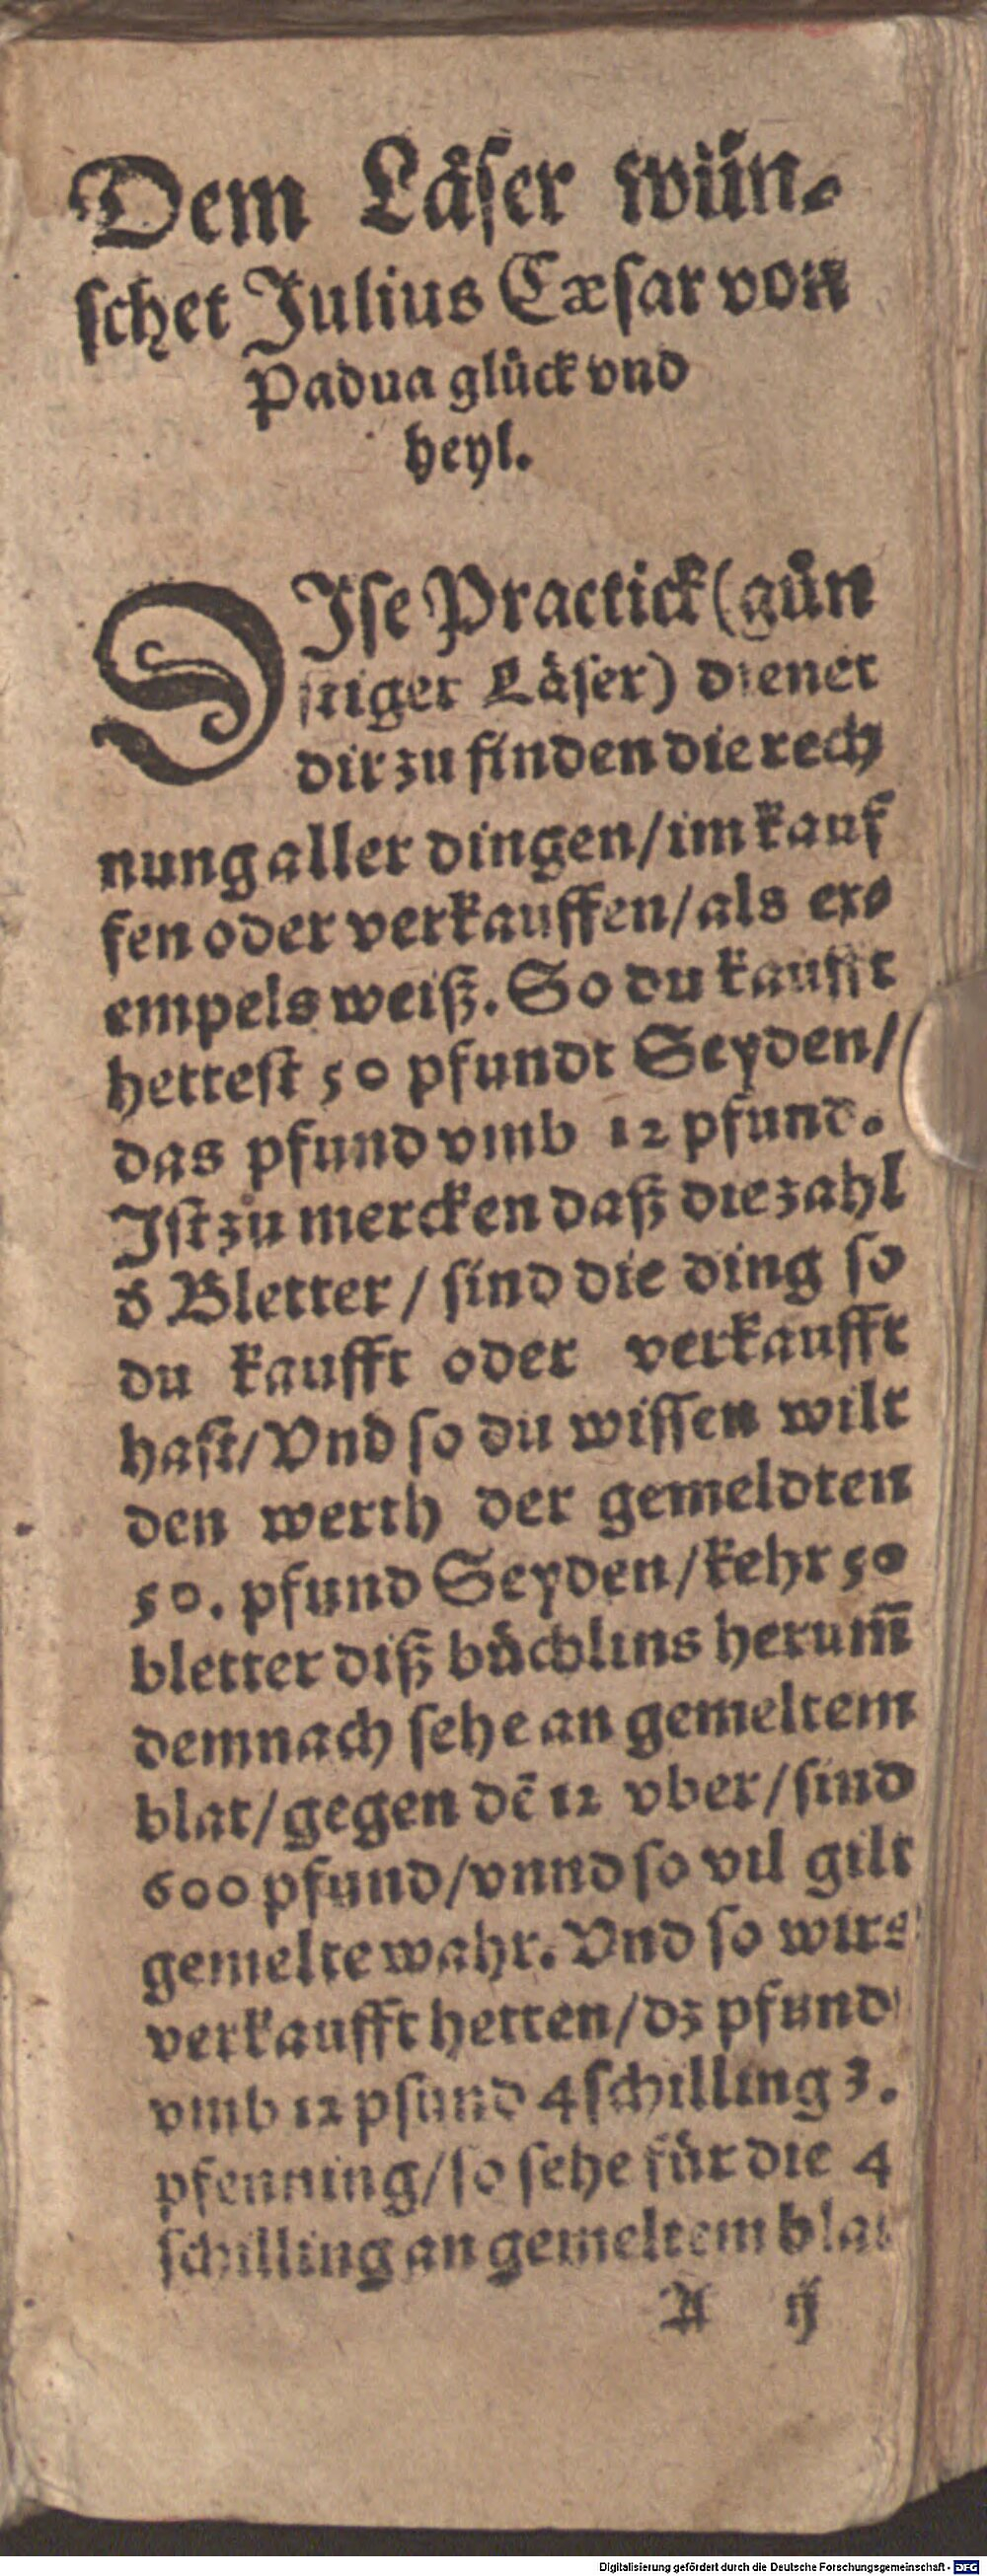 Dem Låser wün-
schet Julius Cæsar von
Padua glůck vnd
heyl.
DIse Practick (gůn
stiger Låser) dienet
dir zu finden die rech
nung aller dingen/im kauf
fen oder verkauffen/als ex-
empels weiß. So du kaufft
hettest 50 pfundt Seyden/
das pfund vmb 12 pfund.
Ist zů mercken daß die zahl
đ Bletter / sind die ding so
du kaufft oder verkaufft
hast/Vnd so du wissen wilt
den werth der gemeldten
50. pfund Seyden/kehr 50
bletter diß bůchlins herum̄
demnach sehe an gemeltem
blat/gegen dē 12 vber/sind
600 pfund/vnnd so vil gilt
gemelte wahr. Vnd so wirs
verkaufft hetten/dz pfund
vmb 12 pfund 4 schilling 3.
pfenning/so sehe fůr die 4
schilling an gemeltem blat
A ij
Digitalisierung gefördert durch die Deutsche Forschungsgemeinschaft - DFG